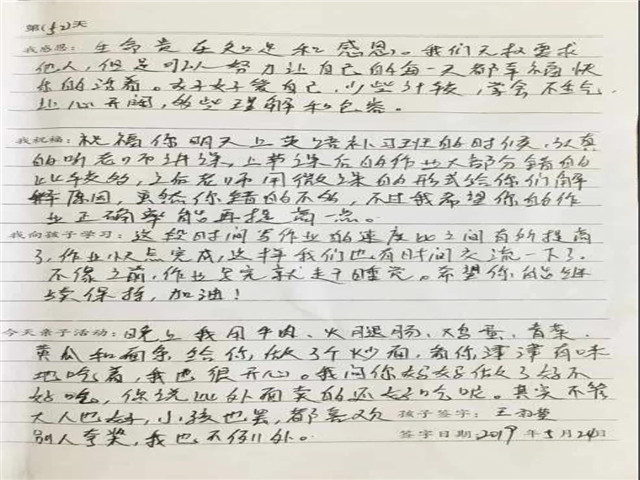 第(52)天
我感恩：生命贵在知足和感恩。我们无权要求
他人，但是可以努力让自己的每一天都幸福快
乐的活着。好好爱自己，少些计较，学会不生气，
让心开阔，多些理解和包容。
我祝福：祝福你明天上英语补习班的时候，认真
的听老师讲课，上节课后的作业大部分错的
比较多，之后老师用微课的形式给你们解
解原因，虽然你错的不多，不过我希望你的作
业正确率能再提高一点。
我向孩子学习：这段时间写作业的速度比之间有所提高
了，作业快点完成，这样我们也有时间交流一下了。
不像之前，作业写完就赶于睡觉。希望你能继
续保持，加油！
今天亲子活动：晚上我用牛肉、火腿肠、鸡蛋、青菜、
黄瓜和面条给你做了个炒面，看你津津有味
地吃着，我也很开心。我问你妈妈做了好不
好吃，你说比外面卖的还好吃呢。其实不管
大人也好，小孩也罢，都喜欢 孩子签字：王
别人夸奖，我也不例外。 签字日期：2019年5月24日